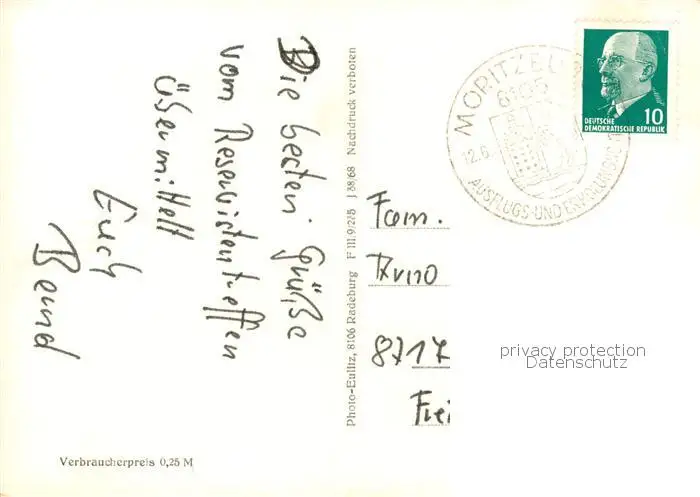 Die besten Grüße
vom Reservistentreffen
übermittelt
Euch
Bernd
Verbraucherpreis 0,25 M
Photo-Eulitz, 8106 Radeburg F III/9/275 J 38/68 Nachdruck verboten
MORITZBU
8105
12.6.
AUSFLUGS-UND ERHOLUNGSORT
10
DEUTSCHE
DEMOKRATISCHE REPUBLIK
Fam.
8717
Frei
privacy protection
Datenschutz